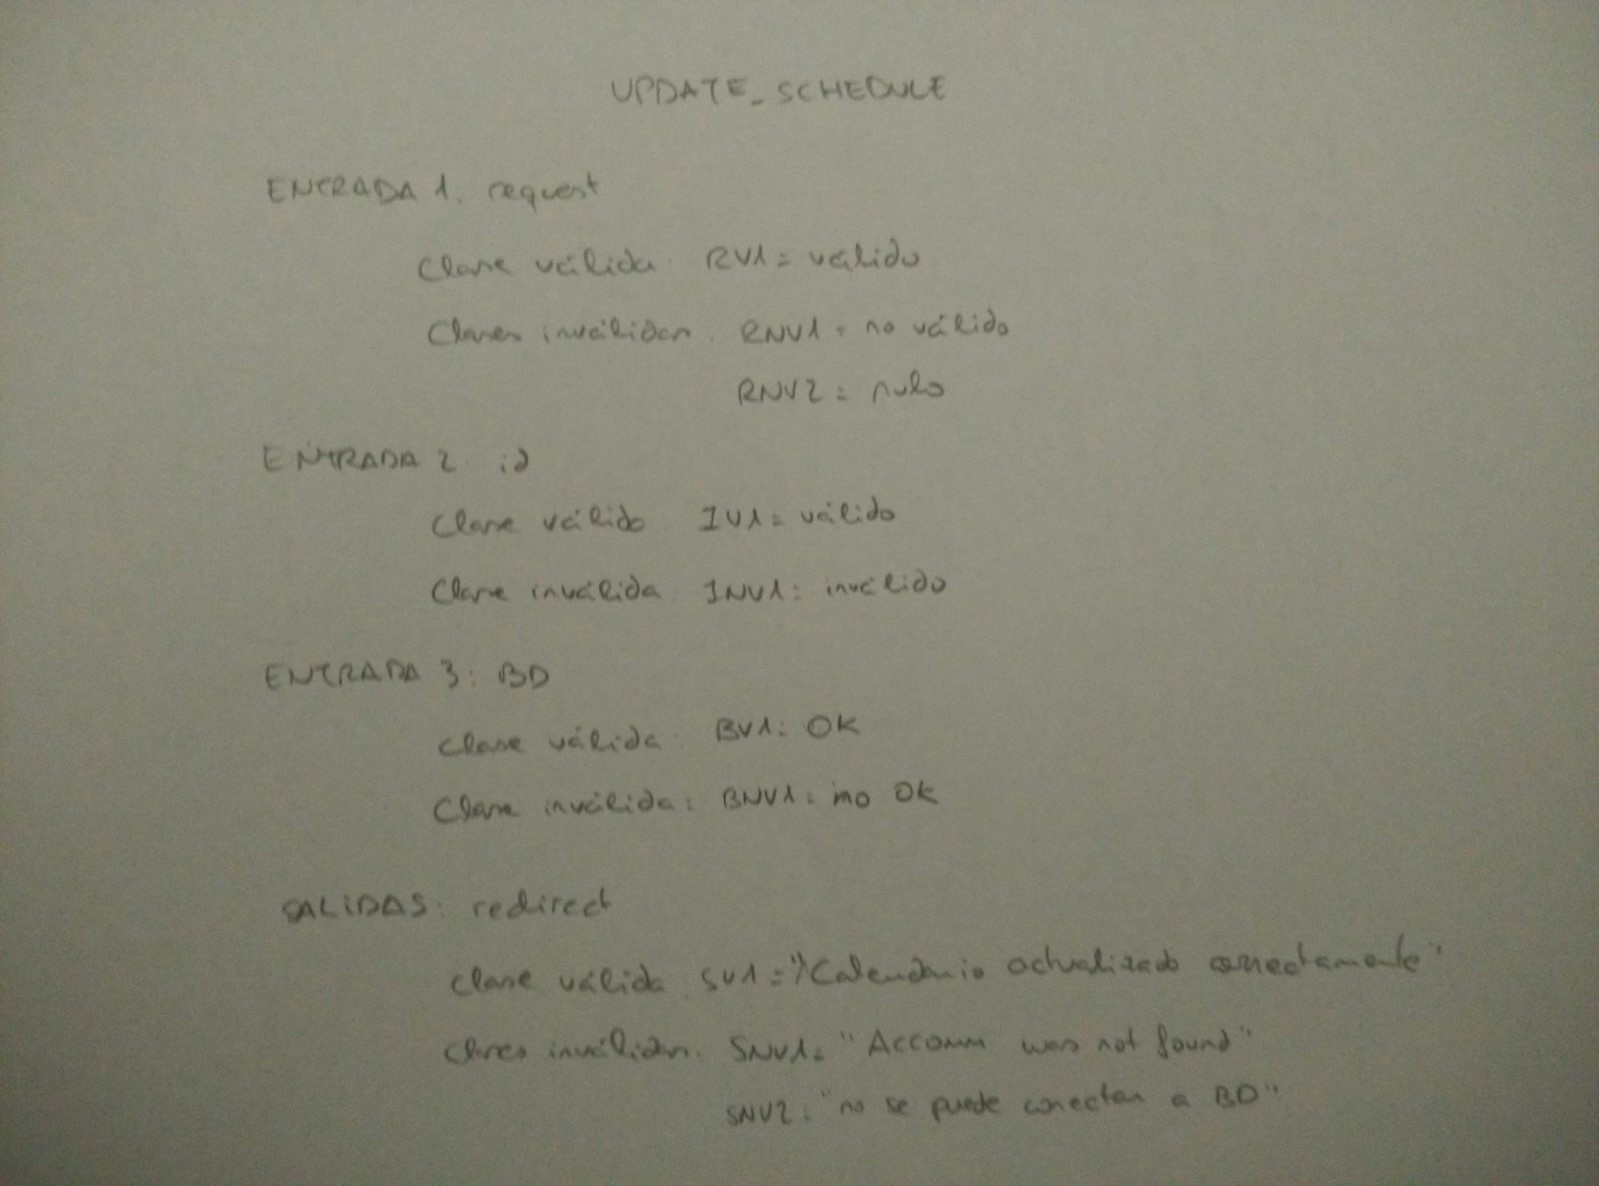 UPDATE_SCHEDULE
ENTRADA 1. request
Clase válida: RV1 = válido
Clases inválidas. RNV1 = no válido
RNV2 = nulo
ENTRADA 2 id
Clase válido IV1 = válido
Clase inválida. INV1: inválido
ENTRADA 3: BD
Clase válida: BV1: OK
Clase inválida: BNV1: no OK
SALIDAS: redirect
Clase válida. SV1 = "Calendario actualizado correctamente"
Clases inválidas. SNV1: "Accomm was not found"
SNV2: "no se puede conectar a BD"